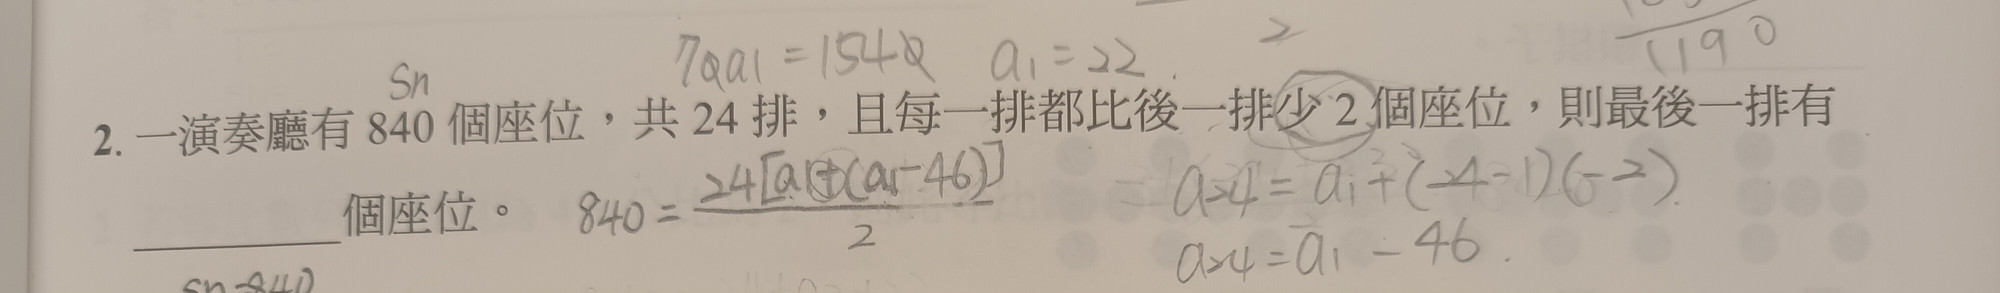 2
1190
70a1=1540 a1=22.
Sn
2. 一演奏廳有 840 個座位,共 24 排,且每一排都比後一排少 2 個座位,則最後一排有
個座位。
840=24[a1+(a1-46)]
2
a24=a1+(24-1)(-2).
a24=a1-46.
Sn=840